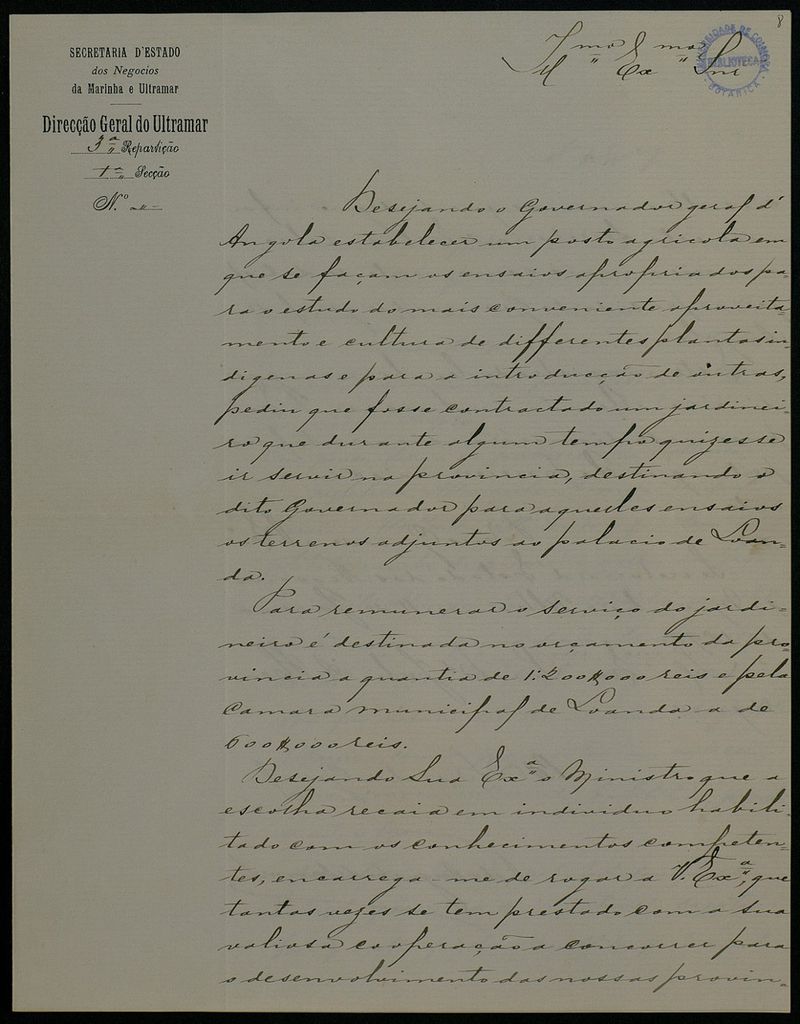 8
SECRETARIA D'ESTADO
dos Negocios
da Marinha e Ultramar
Direcção Geral do Ultramar
3ª Repartição
1ª Secção
N.º
Illmo e Exmo Snr
UNIVERSIDADE DE COIMBRA
BIBLIOTECA
BOTANICA
Desejando o Governador geral d'
Angola estabelecer um posto agricola em
que se façam os ensaios apropriados pa-
ra o estudo do mais conveniente aproveita-
mento e cultura de differentes plantas in-
digenas e para a introducção de outras,
pediu que fosse contractado um jardinei-
ro que durante algum tempo quizesse
ir servir na provincia, destinando o
dito Governador para aquelles ensaios
os terrenos adjuntos ao palacio de Loan-
da.
Para remunerar o serviço do jardi-
neiro é destinada no orçamento da pro-
vincia a quantia de 1:200$000 reis e pela
Camara municipal de Loanda a de
600$000 reis.
Desejando Sua Exª o Ministro que a
escolha recaia em individuo habili-
tado com os conhecimentos competen-
tes, encarrega-me de rogar a V. Exª, que
tantas vezes se tem prestado com a sua
valiosa cooperação a concorrer para
o desenvolvimento das nossas provin-